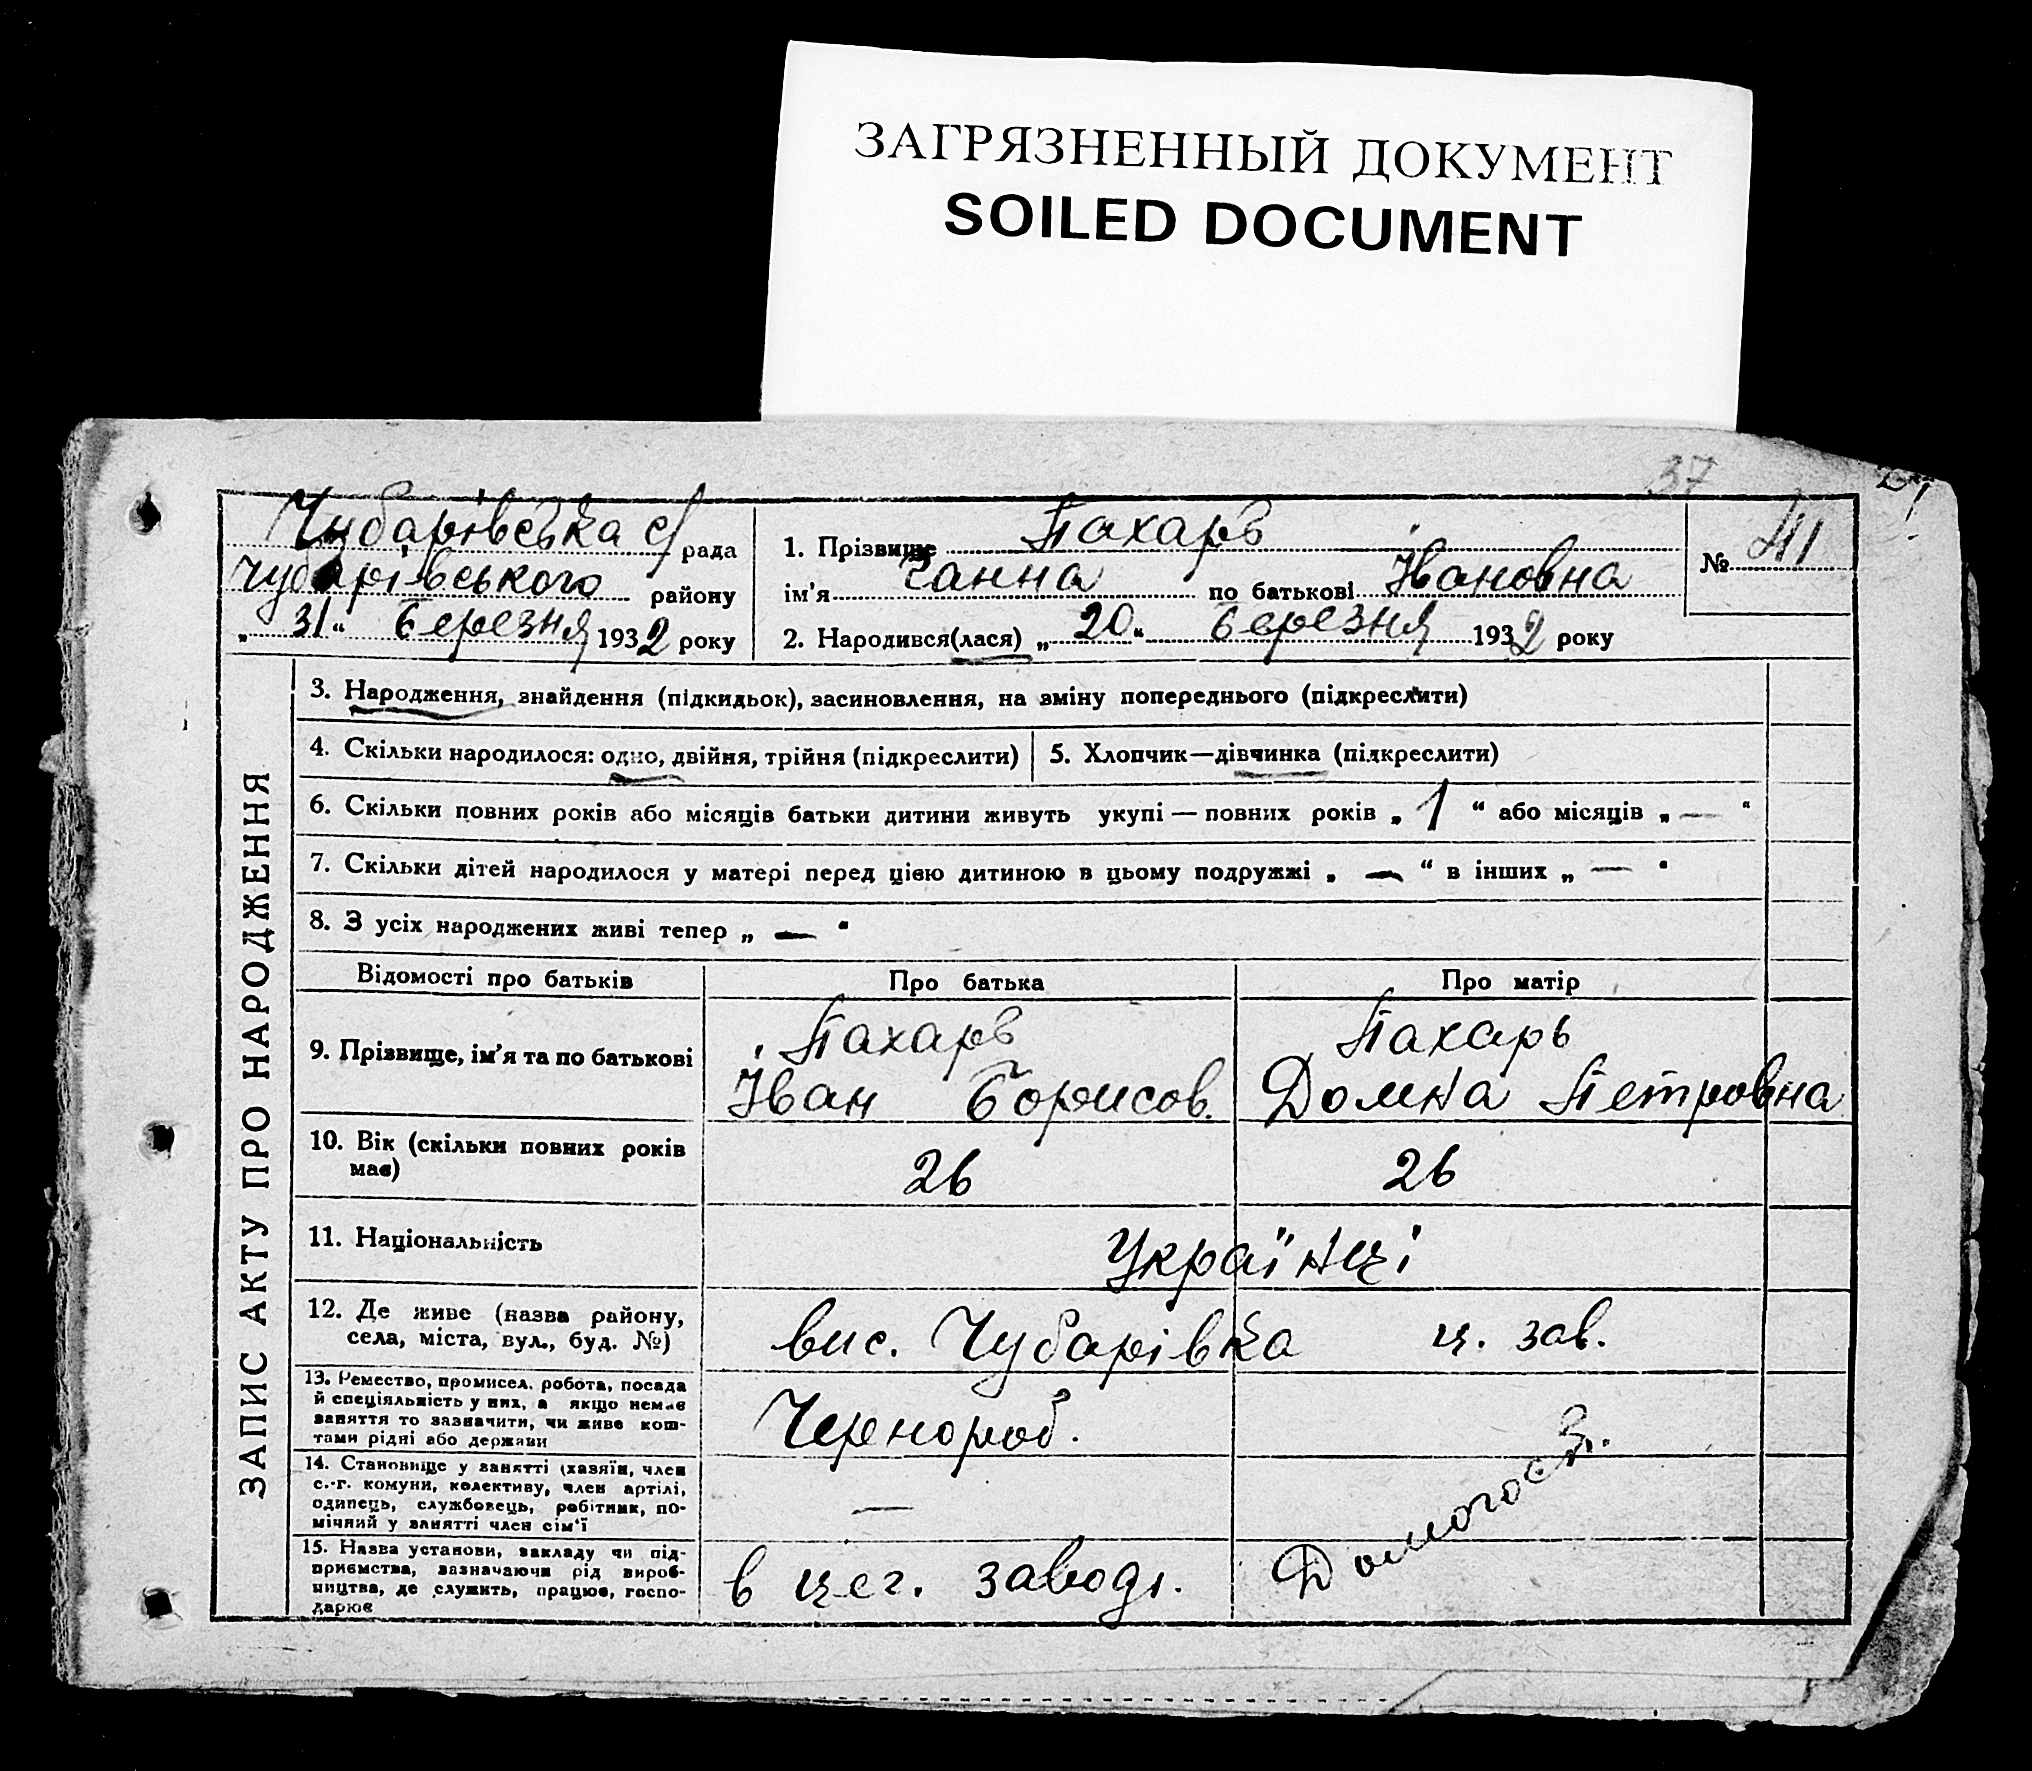 ЗАГРЯЗНЕННЫЙ ДОКУМЕНТ
SOILED DOCUMENT
37
Чубарівська с/рада
Чубарівського району
„31“ березня 1932 року
1. Прізвище Пахарь
ім'я Ганна по батькові Івановна
2. Народився(лася) „20“ березня 1932 року
№ 41
ЗАПИС АКТУ ПРО НАРОДЖЕННЯ
3. Народження, знайдення (підкидьок), засиновлення, на зміну попереднього (підкреслити)
4. Скільки народилося: одно, двійня, трійня (підкреслити)
5. Хлопчик—дівчинка (підкреслити)
6. Скільки повних років або місяців батьки дитини живуть укупі — повних років „ 1 “ або місяців „ — “
7. Скільки дітей народилося у матері перед цією дитиною в цьому подружжі „ — “ в інших „ — “
8. З усіх народжених живі тепер „ — “
Відомості про батьків
Про батька
Про матір
9. Прізвище, ім'я та по батькові
Пахарь
Іван Борисов.
Пахарь
Домна Петровна
10. Вік (скільки повних років
має)
26
26
11. Національність
Українці
12. Де живе (назва району,
села, міста, вул., буд. №)
вис. Чубарівка ц. зав.
13. Ремество, промисел, робота, посада
й спеціяльність у них, а якщо немає
заняття то зазначити, чи живе кош-
тами рідні або держави
Чернороб.
14. Становище у занятті (хазяїн, член
с.-г. комуни, колективу, член артілі,
одинець, службовець, робітник, по-
мічний у занятті член сім'ї
—
15. Назва установи, закладу чи під-
приємства, зазначаючи рід вироб-
ництва, де служить, працює, госпо-
дарює
в цег. заводі.
Домогосп.